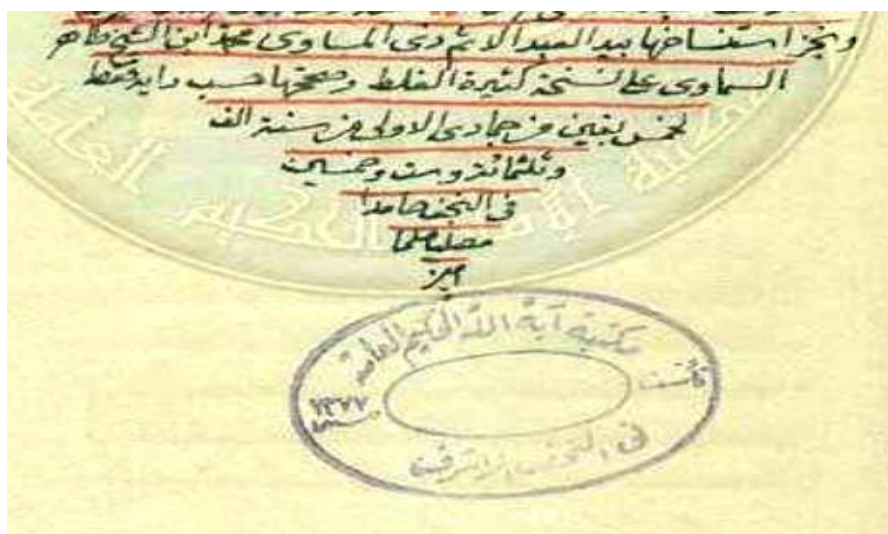 ونجز استنساخها بيد العبد الاثم دنى المساوى محمد ابن الشيخ طاهر
السماوى على نسخة كثيرة الغلط وصححها حسب
لخمس بقين من جمادى الاولى من سنة الف
وثلثمائة وست وخمسين
في النجف حامدا
مصليا مسلما
مكتبة آية الله الحكيم العامة
تأسست
سنة ١٣٧٧
في النجف الاشرف